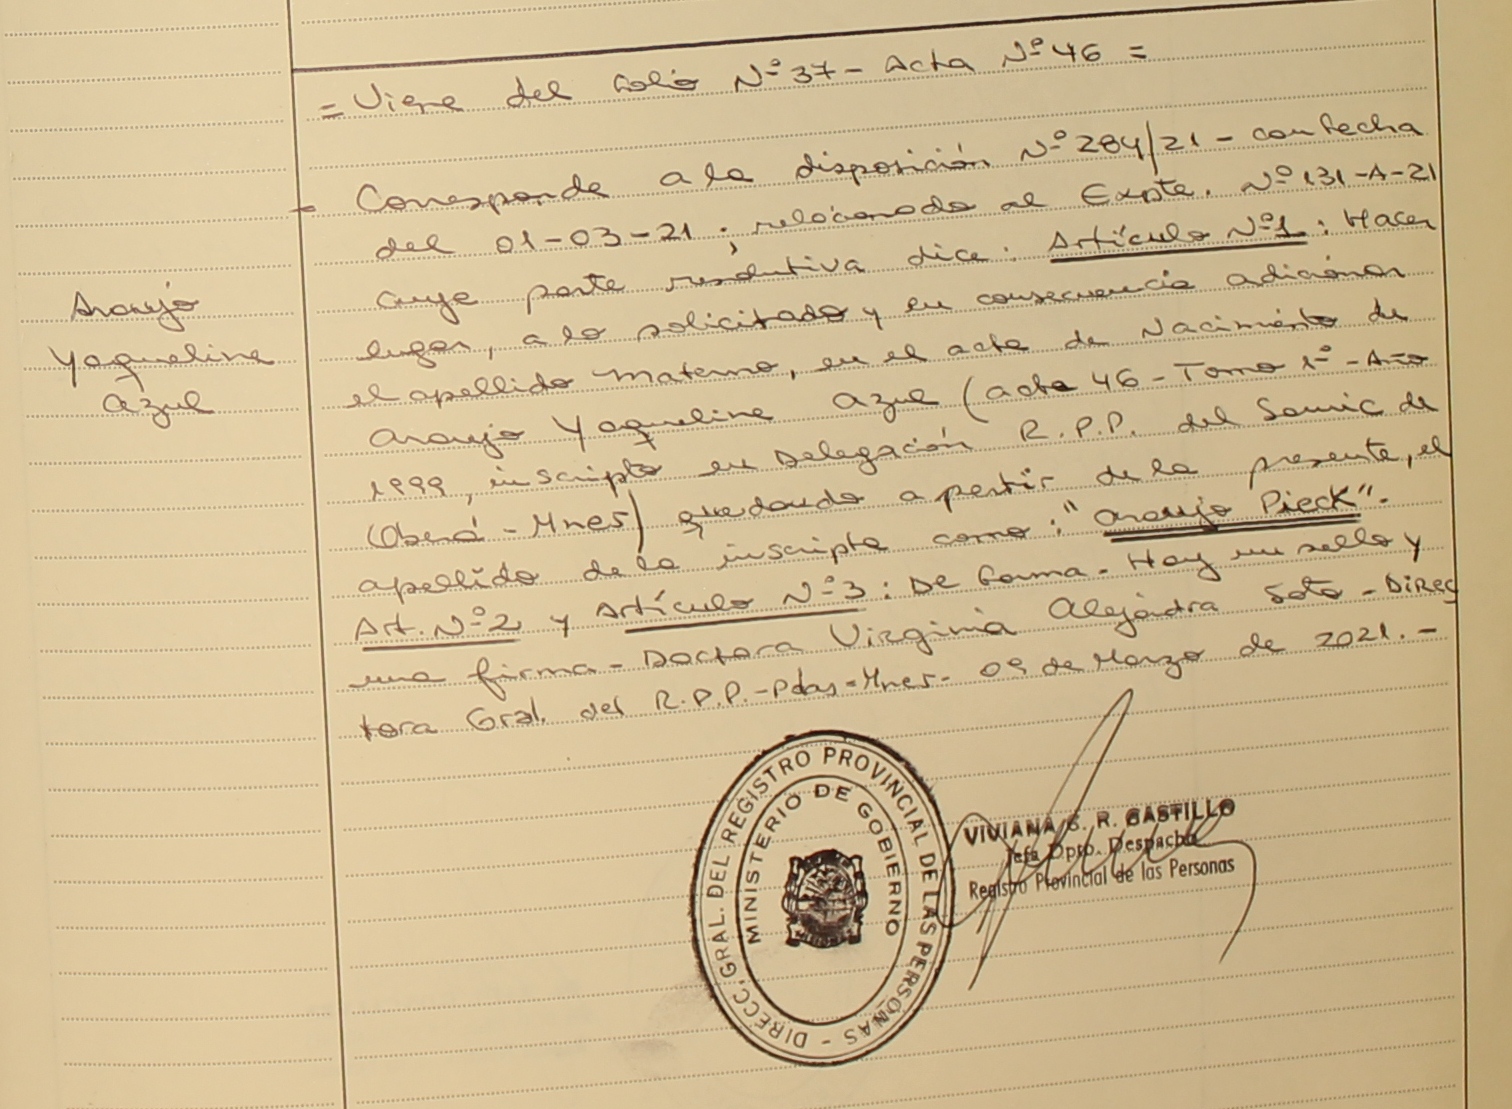 = Viene del folio Nº 37 - Acta Nº 46 =
- Corresponde a la disposición Nº 284/21 - con fecha
del 01-03-21 ; relacionado al Expte. Nº 131-A-21
cuya parte resolutiva dice : Artículo Nº1 : Hacer
lugar, a lo solicitado y en consecuencia adicionar
el apellido materno, en el acta de Nacimiento de
Araujo Yaqueline Azul (acta 46 - Tomo 1º - Año
1999, inscripta en Delegación R.P.P. del Samic de
Oberá - Mnes) quedando a partir de la presente, el
apellido de la inscripta como : "Araujo Pieck".
Art. Nº2 y Artículo Nº3 : De forma - Hay un sello y
una firma - Doctora Virginia Alejandra Soto - Direc
tora Gral. del R.P.P. - Pdas - Mnes - 09 de Marzo de 2021. -
Araujo
Yaqueline
Azul
DIRECC. GRAL. DEL REGISTRO PROVINCIAL DE LAS PERSONAS -
MINISTERIO DE GOBIERNO
VIVIANA S. R. CASTILLO
Jefa Dpto. Despacho
Registro Provincial de las Personas